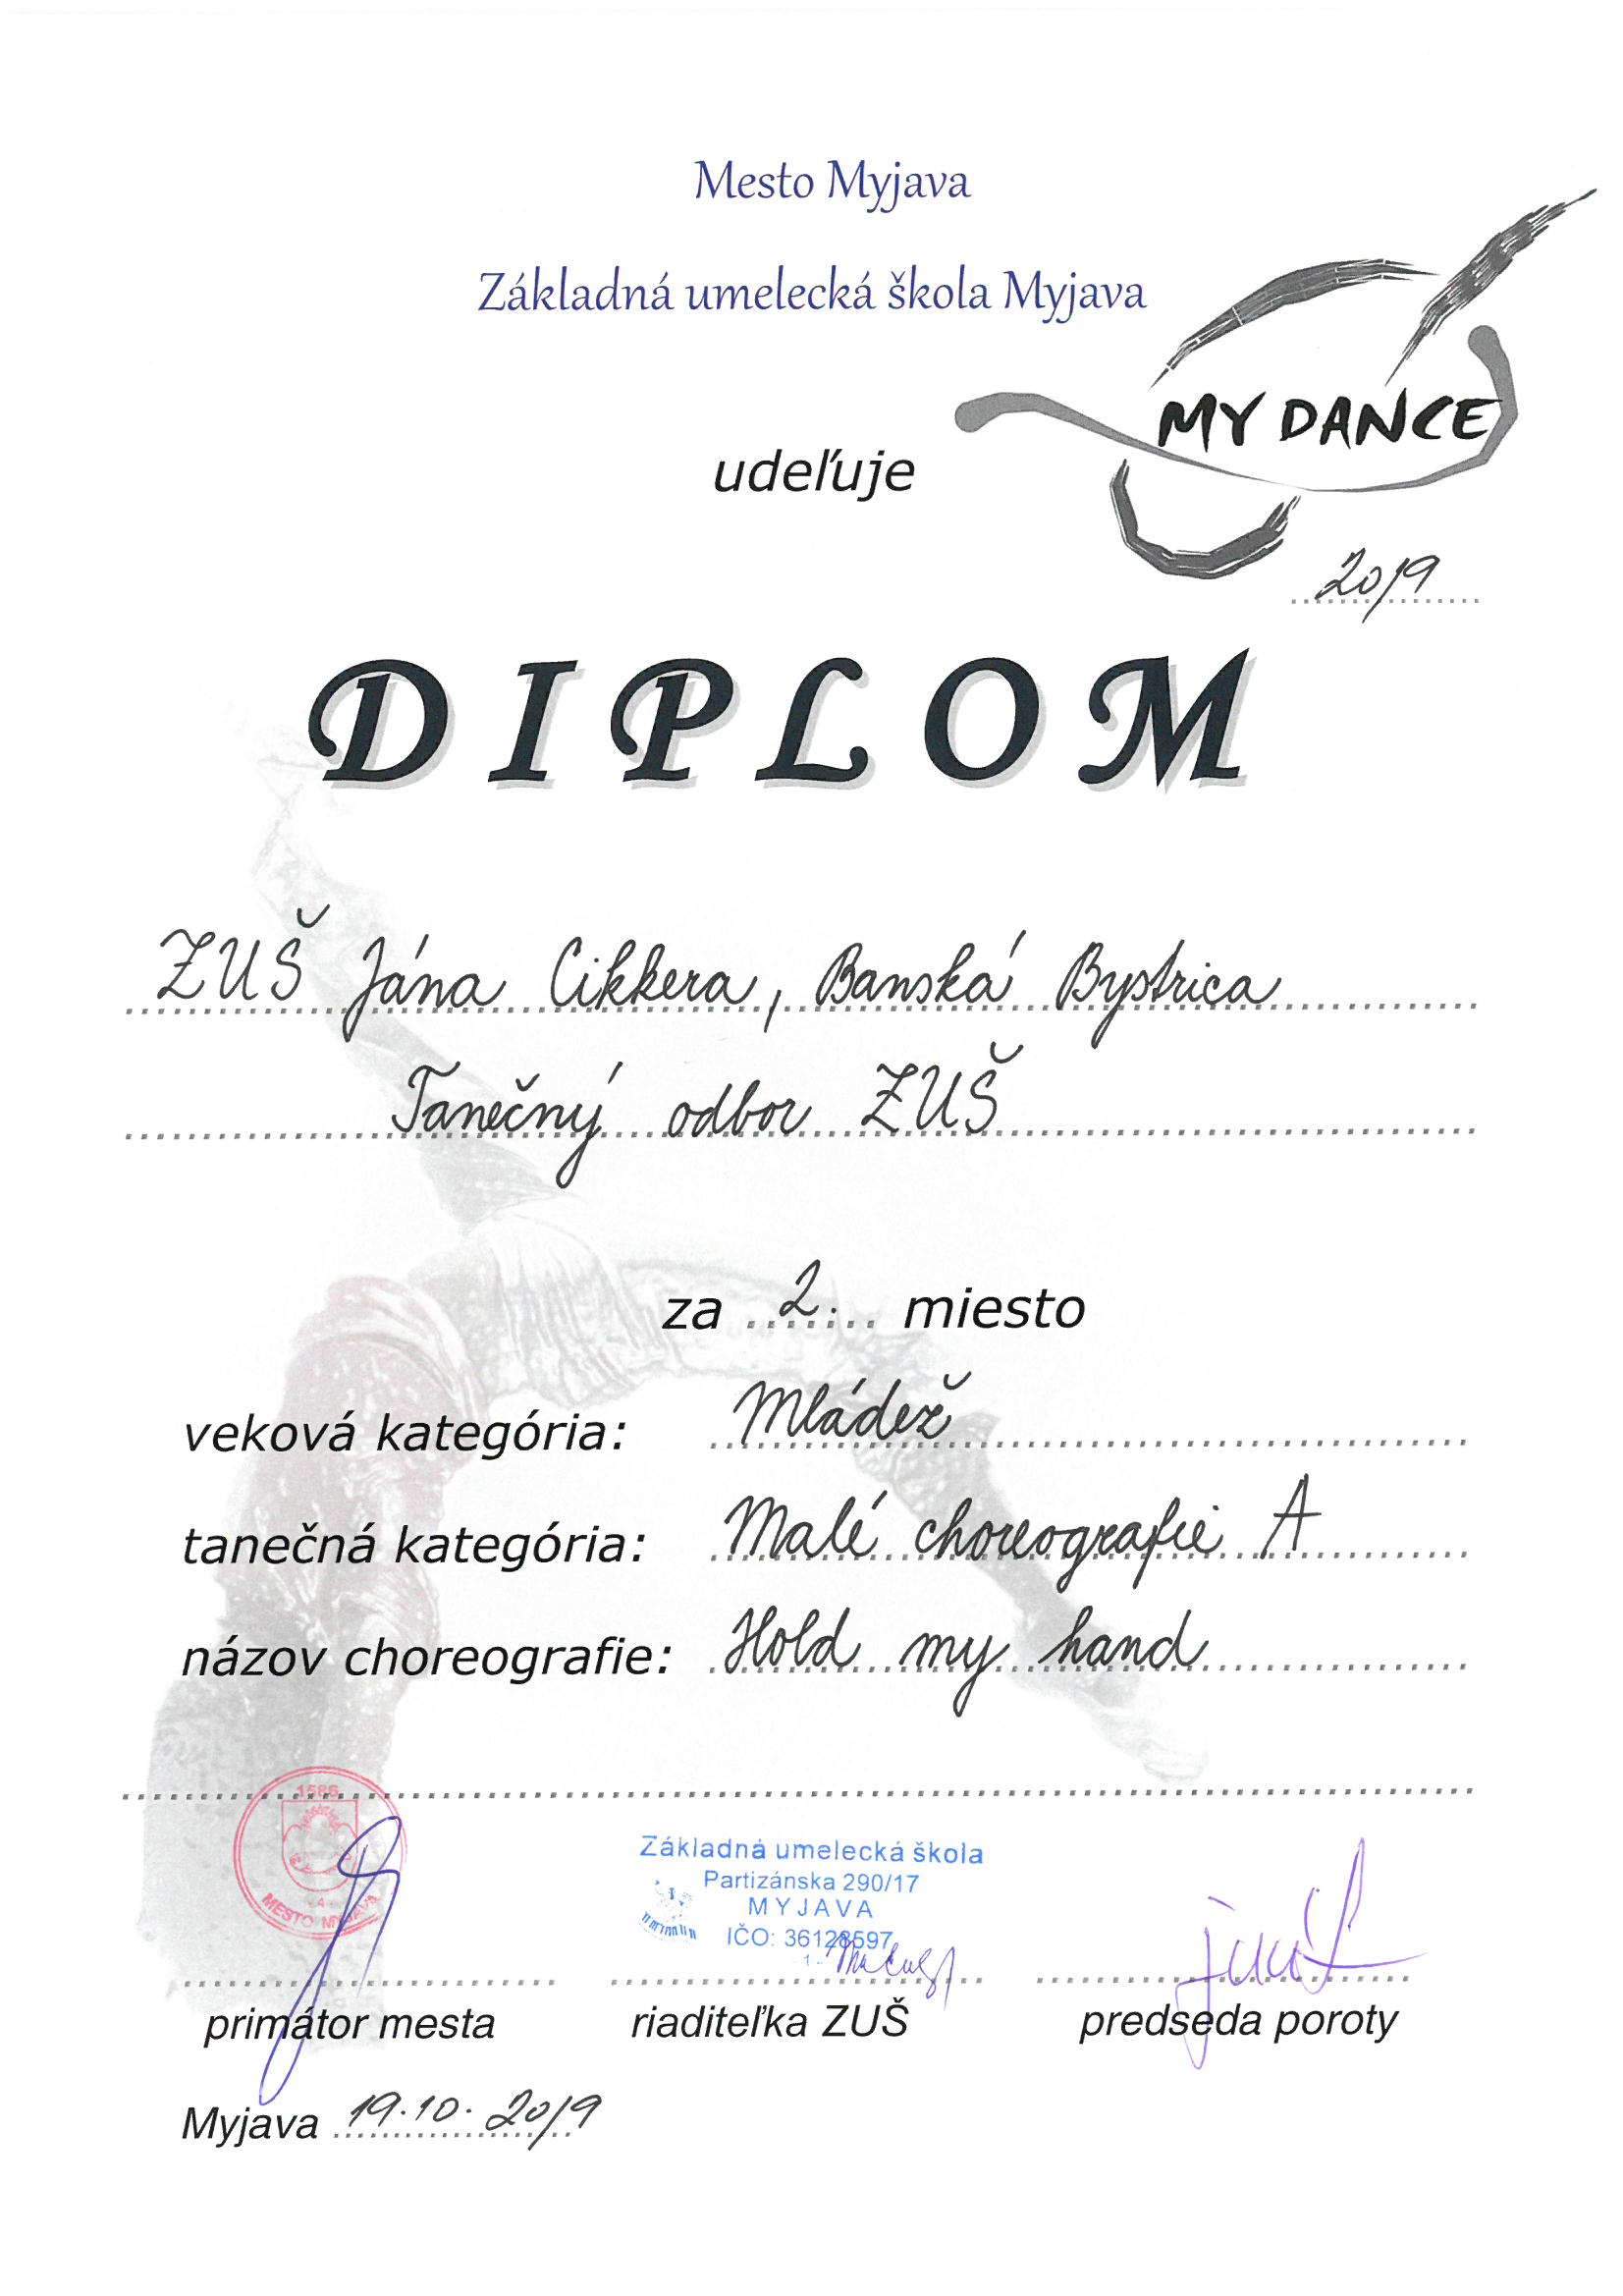 Mesto Myjava
Základná umelecká škola Myjava
MY DANCE
udeľuje
2019
DIPLOM
ZUŠ Jána Cikkera, Banská Bystrica
Tanečný odbor ZUŠ
za 2. miesto
veková kategória: Mládež
tanečná kategória: Malé choreografie A
názov choreografie: Hold my hand
1586
MESTO MYJAVA
Základná umelecká škola
Partizánska 290/17
MYJAVA
IČO: 36128597
-1-
primátor mesta riaditeľka ZUŠ predseda poroty
Myjava 19.10.2019